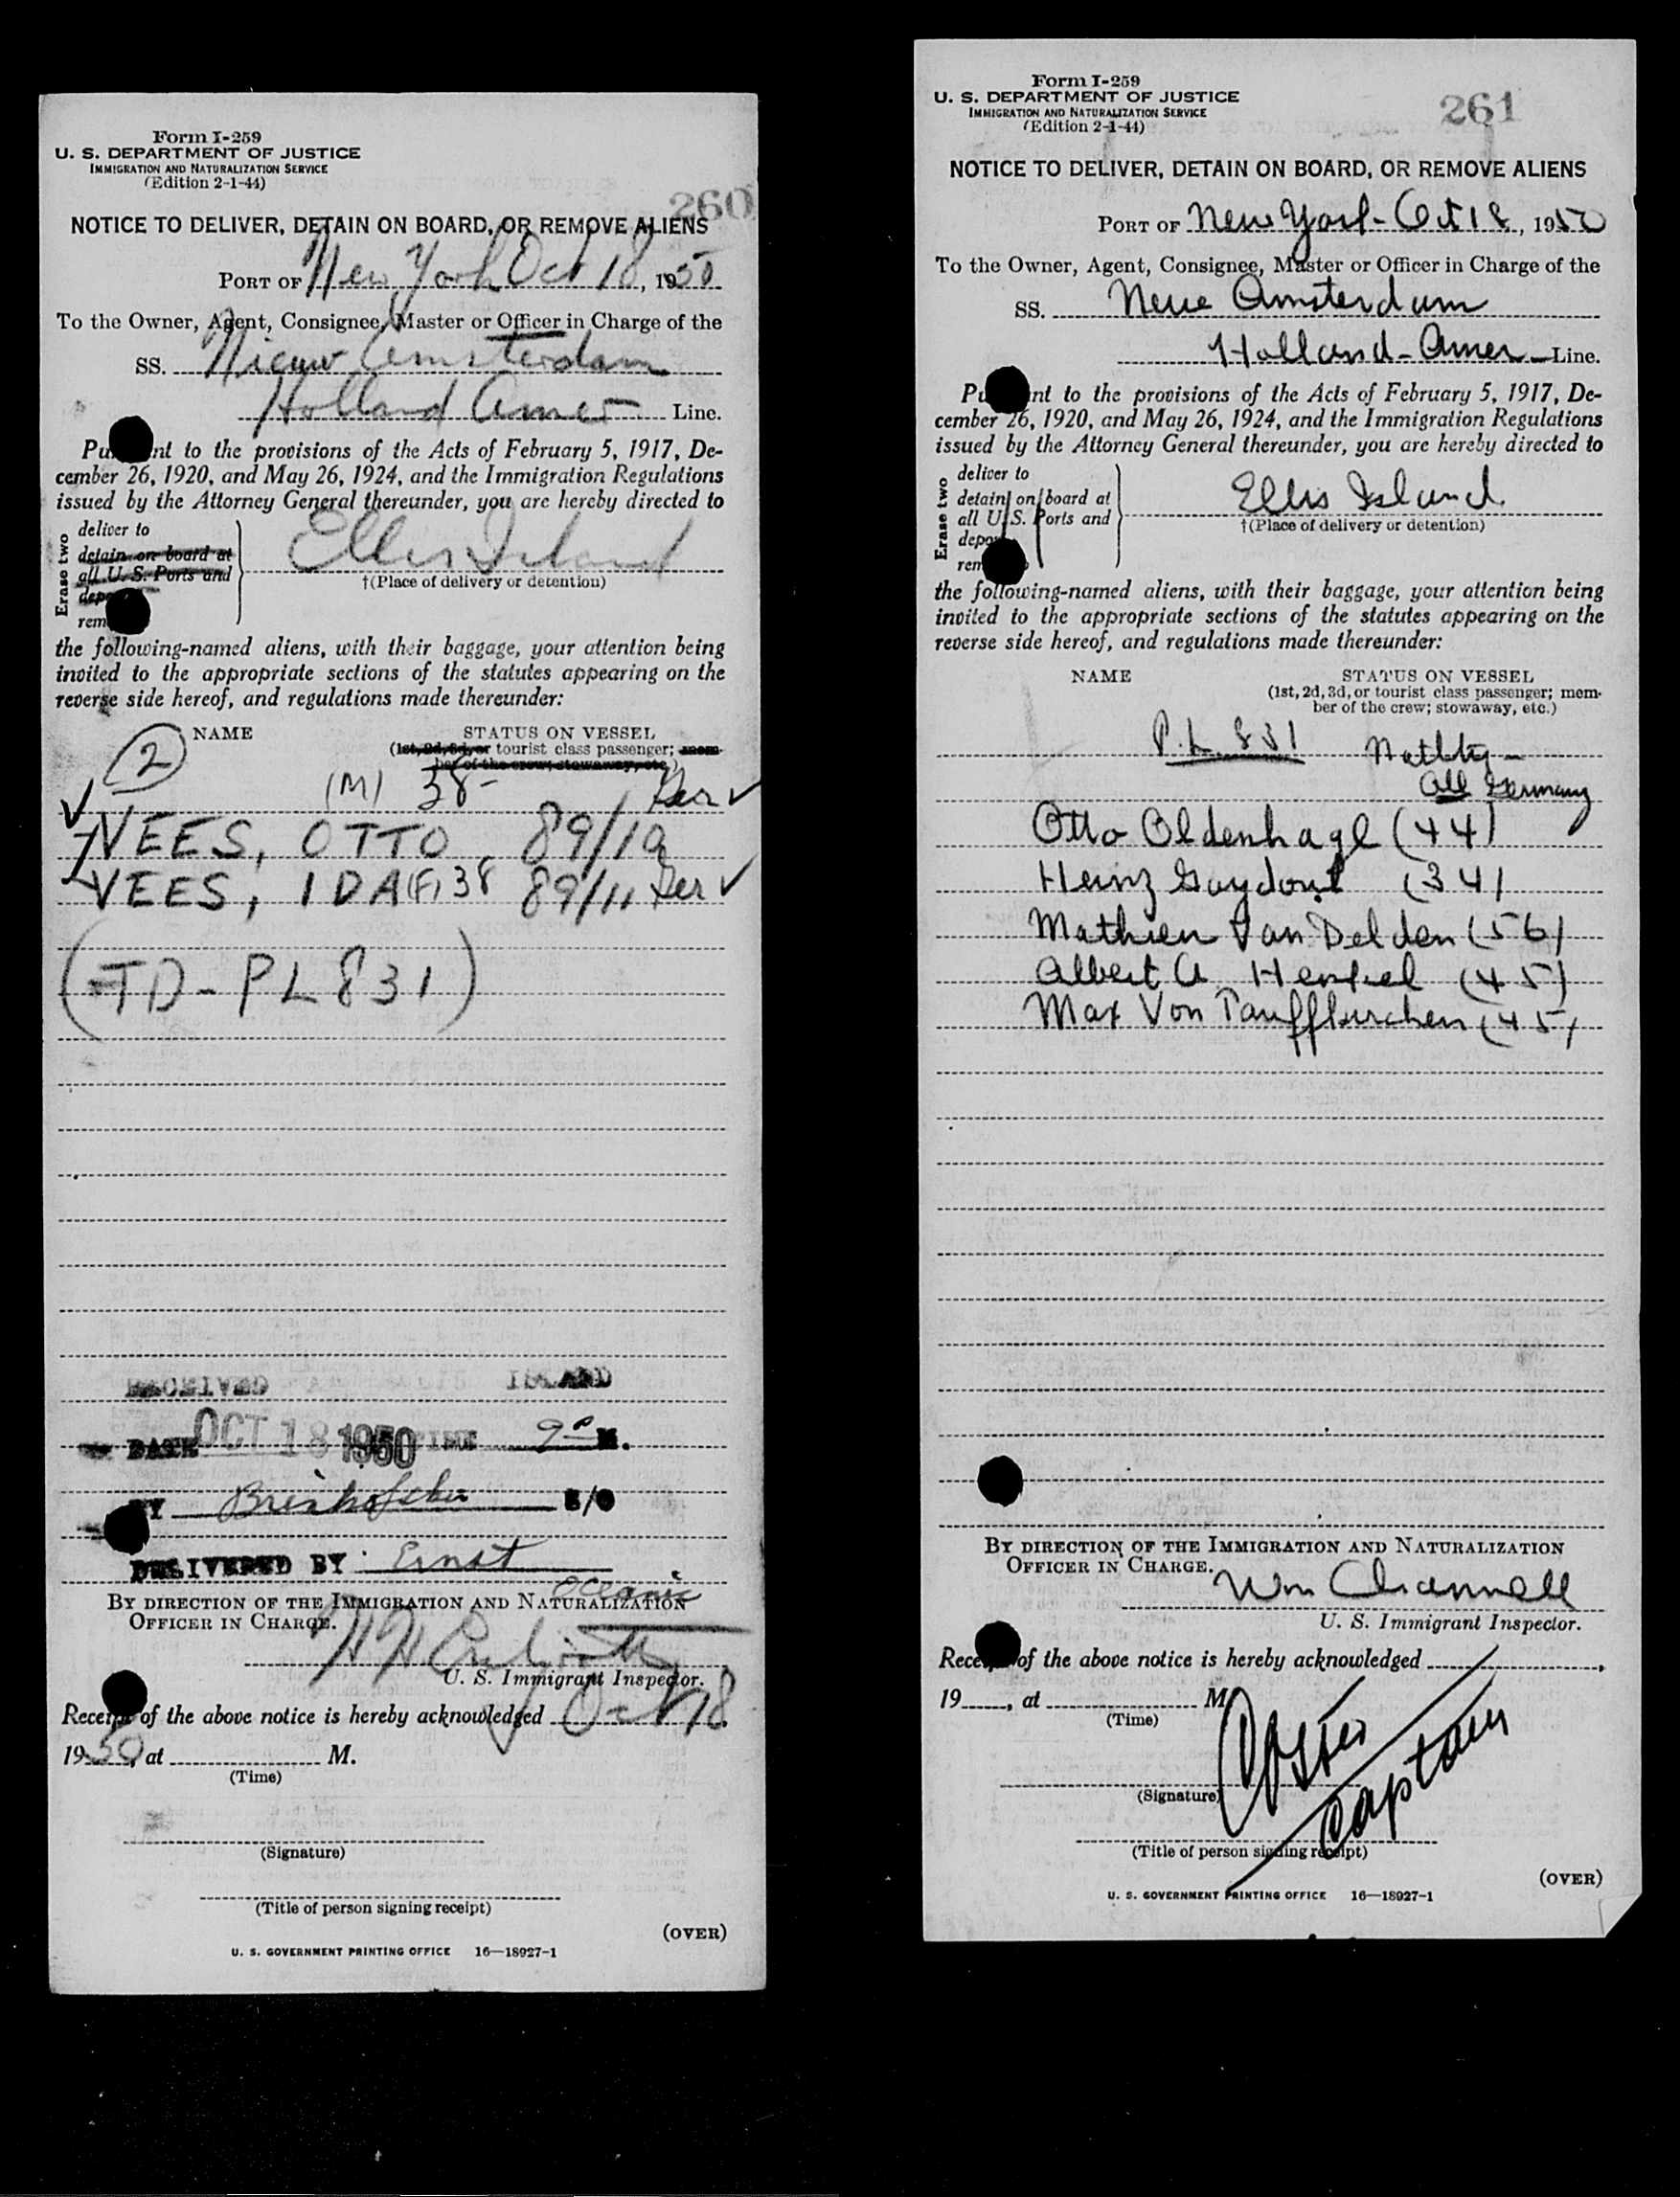 Form I-259
U. S. DEPARTMENT OF JUSTICE
IMMIGRATION AND NATURALIZATION SERVICE
(Edition 2-1-44)
260
NOTICE TO DELIVER, DETAIN ON BOARD, OR REMOVE ALIENS
PORT OF New York Oct 18, 1950
To the Owner, Agent, Consignee, Master or Officer in Charge of the
SS. Nieuw Amsterdam
Holland Amer Line.
Pu nt to the provisions of the Acts of February 5, 1917, De-
cember 26, 1920, and May 26, 1924, and the Immigration Regulations
issued by the Attorney General thereunder, you are hereby directed to
Erase two
deliver to
detain on board at
all U. S. Ports and
depo
rem
Ellis Island
†(Place of delivery or detention)
the following-named aliens, with their baggage, your attention being
invited to the appropriate sections of the statutes appearing on the
reverse side hereof, and regulations made thereunder:
NAME STATUS ON VESSEL
(1st, 2d, 3d, or tourist class passenger; mem-
ber of the crew; stowaway, etc.)
2
(M) 38- Ger ✓
✓ VEES, OTTO 89/10
VEES, IDA (F) 38 89/11 Ger ✓
(TD - PL 831)
RECEIVED ISLAND
DATE OCT 18 1950 TIME 9 M.
BY S/O
DELIVERED BY Ernst
Oceanic
BY DIRECTION OF THE IMMIGRATION AND NATURALIZATION
OFFICER IN CHARGE.
U. S. Immigrant Inspector.
Receipt of the above notice is hereby acknowledged Oct 18,
1950, at M.
(Time)
(Signature)
(Title of person signing receipt)
(OVER)
U. S. GOVERNMENT PRINTING OFFICE 16—18927-1
Form I-259
U. S. DEPARTMENT OF JUSTICE
IMMIGRATION AND NATURALIZATION SERVICE
(Edition 2-1-44)
261
NOTICE TO DELIVER, DETAIN ON BOARD, OR REMOVE ALIENS
PORT OF New York - Oct 18, 1950
To the Owner, Agent, Consignee, Master or Officer in Charge of the
SS. Neue Amsterdam
Holland-Amer Line.
Pu nt to the provisions of the Acts of February 5, 1917, De-
cember 26, 1920, and May 26, 1924, and the Immigration Regulations
issued by the Attorney General thereunder, you are hereby directed to
Erase two
deliver to
detain on board at
all U. S. Ports and
depo
rem
Ellis Island
†(Place of delivery or detention)
the following-named aliens, with their baggage, your attention being
invited to the appropriate sections of the statutes appearing on the
reverse side hereof, and regulations made thereunder:
NAME STATUS ON VESSEL
(1st, 2d, 3d, or tourist class passenger; mem-
ber of the crew; stowaway, etc.)
P.L. 831 Natlty -
All Germany
Otto Oldenhage (44)
Heinz Gaydoul (34)
Mathieu Van Delden (56)
Albert A Henkel (45)
Max Von Tauffkirchen (45)
BY DIRECTION OF THE IMMIGRATION AND NATURALIZATION
OFFICER IN CHARGE.
Wm Channell
U. S. Immigrant Inspector.
Rece of the above notice is hereby acknowledged
19 , at M.
(Time)
(Signature)
Captain
(Title of person signing receipt)
(OVER)
U. S. GOVERNMENT PRINTING OFFICE 16—18927-1